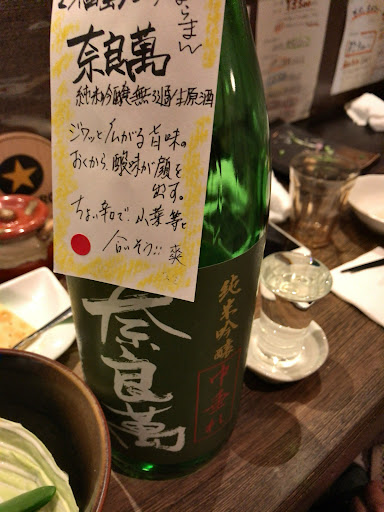 ならまん
奈良萬
純米吟醸無ろ過生原酒
ジワッと広がる旨味の
おくから、酸味が顔を
出す。
ちょい辛で、小菜等と
合いそう!!
純米吟醸
中垂れ
奈良萬